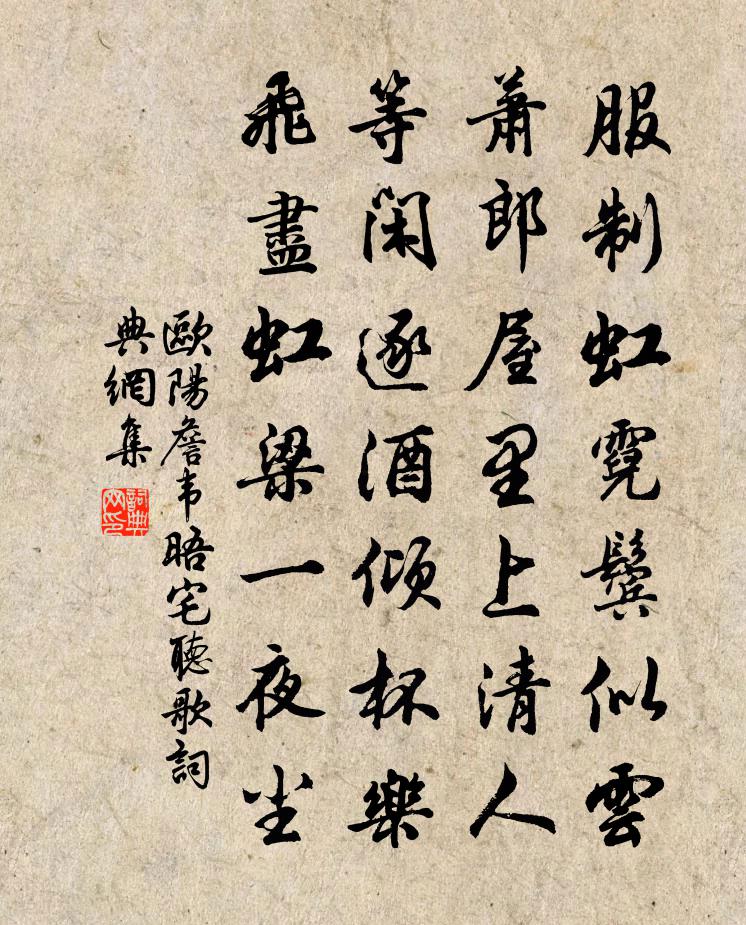 服制虹霓鬢似雲
蕭郎屋里上清人
等閑逐酒傾杯樂
飛盡虹梁一夜尘
歐陽詹韦晤宅聽歌詞
典網集
詞典
网印